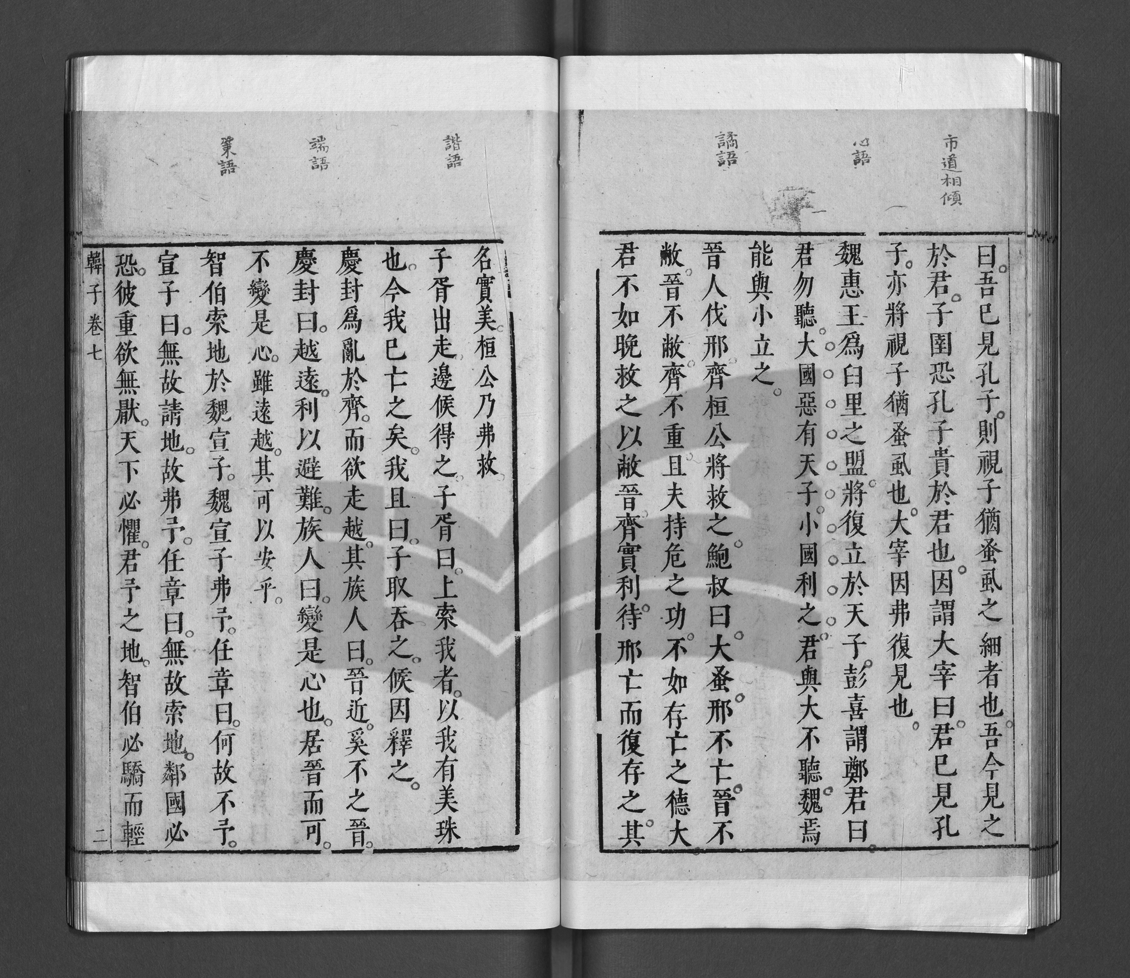 市道相傾
語
譎語
曰。吾已見孔子。則視子猶蚤虱之細者也。吾今見之
於君。子圉恐孔子貴於君也。因謂大宰曰。君已見孔
子。亦將視子猶蚤虱也。大宰因弗復見也。
魏惠王爲臼里之盟。將復立於天子。彭喜謂鄭君曰
君勿聽。大國惡有天子。小國利之。君與大不聽。魏焉
能與小立之。
晉人伐邢。齊桓公將救之。鮑叔曰。大蚤。邢不亡。晉不
敝。晉不敝。齊不重。且夫持危之功。不如存亡之德大
君不如晚救之以敝晉。齊實利。待邢亡而復存之。其
諧語
端語
策語
名實美。桓公乃弗救
子胥出走。邊候得之。子胥曰。上索我者。以我有美珠
也。今我已亡之矣。我且曰。子取吞之。候因釋之。
慶封爲亂於齊。而欲走越。其族人曰。晉近。奚不之晉。
慶封曰。越遠。利以避難。族人曰。變是心也。居晉而可。
不變是心。雖遠越。其可以安乎。
智伯索地於魏宣子。魏宣子弗予。任章曰。何故不予。
宣子曰。無故請地。故弗予。任章曰。無故索地。鄰國必
恐。彼重欲無厭。天下必懼。君予之地。智伯必驕而輕
韓子卷七
二